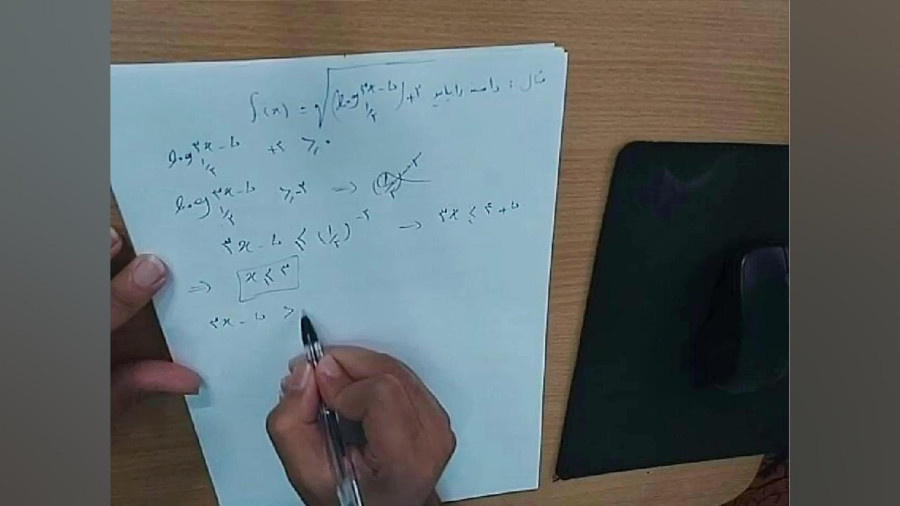 مثال : دامنه را بیابید f(x) = √((log_{۱/۲}^{۳x-۵})+۲)
log_{۱/۲}^{۳x-۵} +۲ ≥ ۰
log_{۱/۲}^{۳x-۵} ≥ -۲ ⇒
۳x - ۵ ≤ (۱/۲)^{-۲} → ۳x ≤ ۴+۵
⇒ x ≤ ۳
۳x - ۵ >